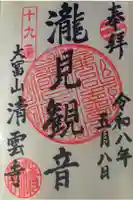 奉拝
令和八年五月八日
十九番
瀧見観音
大冨山清雲寺